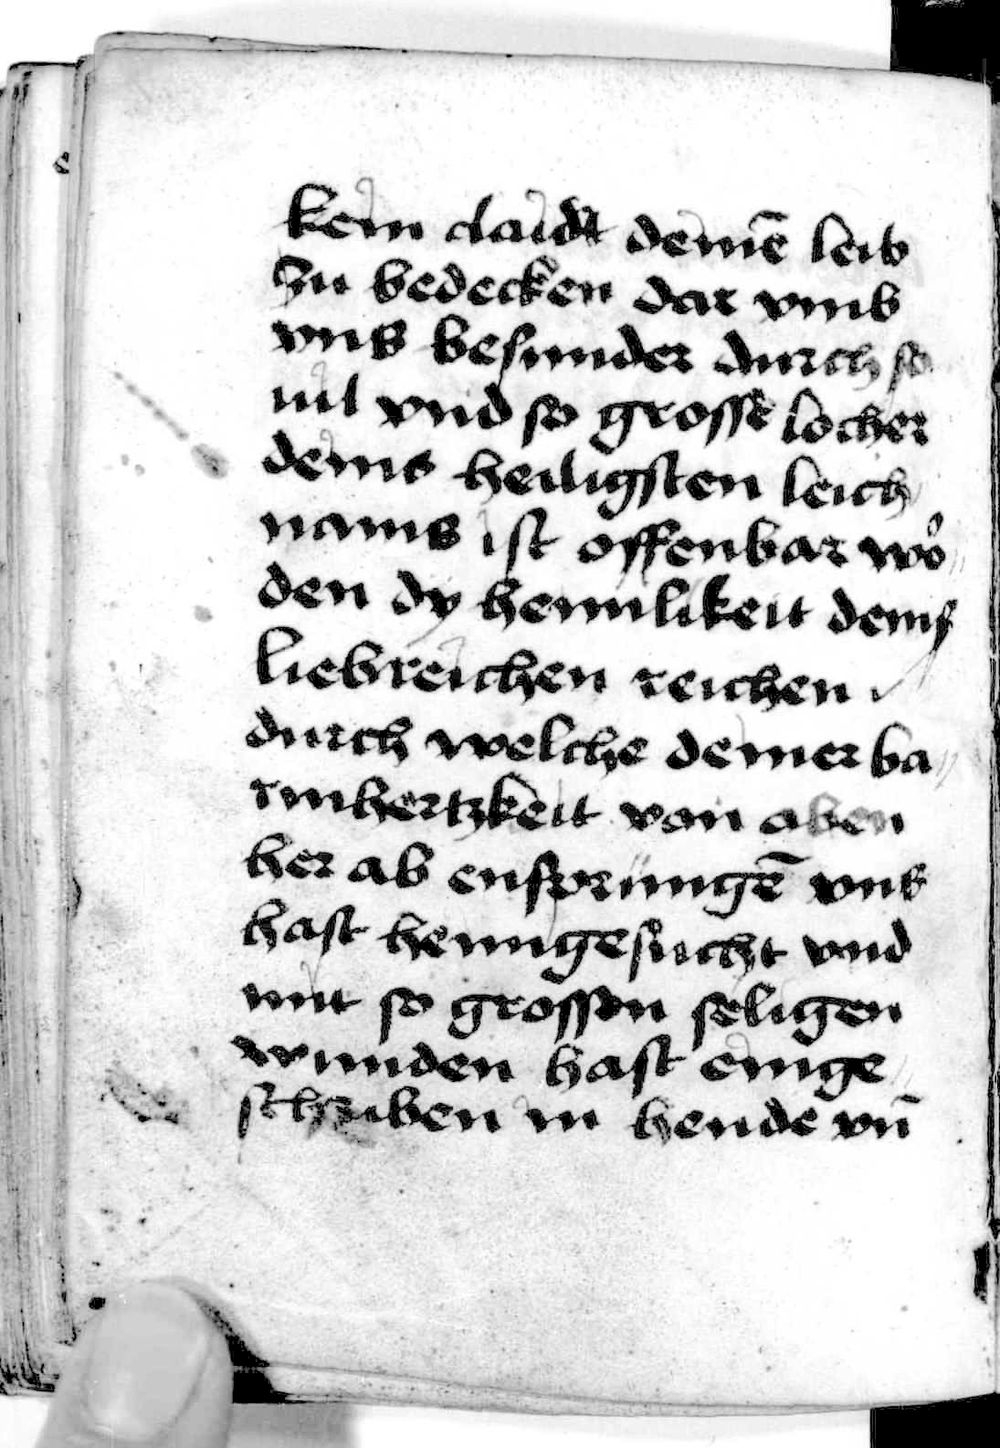 kein claidt deinē leib
zu bedecken dar vmb
vns besunder durch so
uil vnd so grosse locher
deins heiligsten leich
nams ist offenbar wor
den dy heimlikeit deinß
liebreichen reichen
durch welche deiner ba
rmhertzkeit von aben
her ab enspringē vns
hast heimgesucht vnd
mit so grossen seligen
wunden hast einge
schriben in hende vn̄